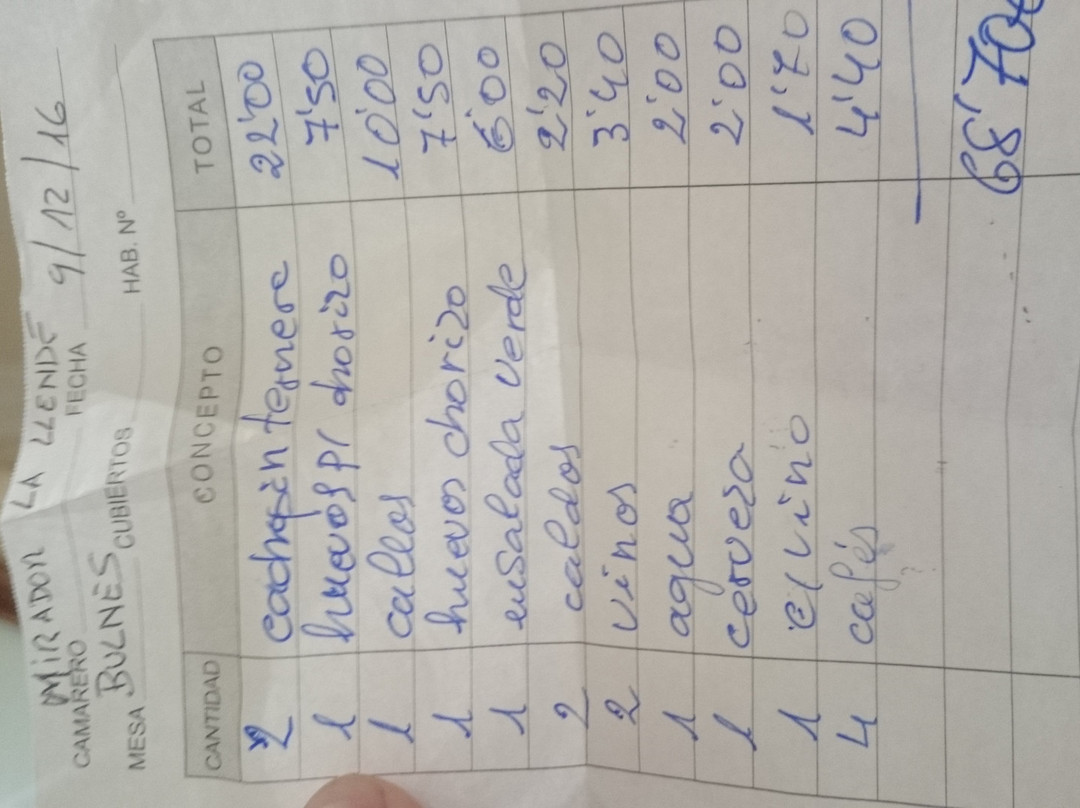 MIRADOR LA LLENDE
CAMARERO FECHA 9/12/16
BULNES
MESA CUBIERTOS HAB. Nº
CANTIDAD CONCEPTO TOTAL
2 cachopin ternera 22'00
1 huevos p/ chorizo 7'50
1 callos 10'00
1 huevos chorizo 7'50
1 ensalada verde 6'00
2 caldos 2'20
2 vinos 3'40
1 agua 2'00
1 cerveza 2'00
1 c/vino 1'70
4 cafés 4'40
68'70€